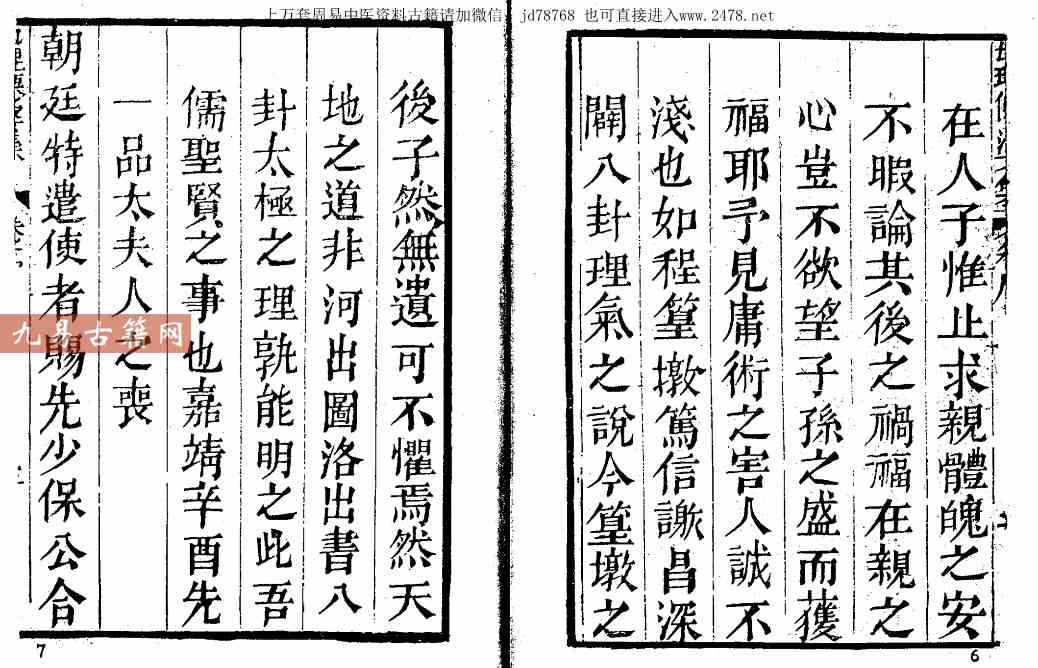 上万套周易中医资料古籍请加微信:jd78768 也可直接进入www.2478.net
在人子惟止求親體魄之安
不暇論其後之禍福在親之
心豈不欲望子孫之盛而獲
福耶予見庸術之害人誠不
淺也如程篁墩篤信謝昌深
闢八卦理氣之說今篁墩之
6
後孑然無遺可不懼焉然天
地之道非河出圖洛出書八
卦太極之理孰能明之此吾
儒聖賢之事也嘉靖辛酉先
一品太夫人之喪
朝廷特遣使者賜先少保公合
7
九易古籍网